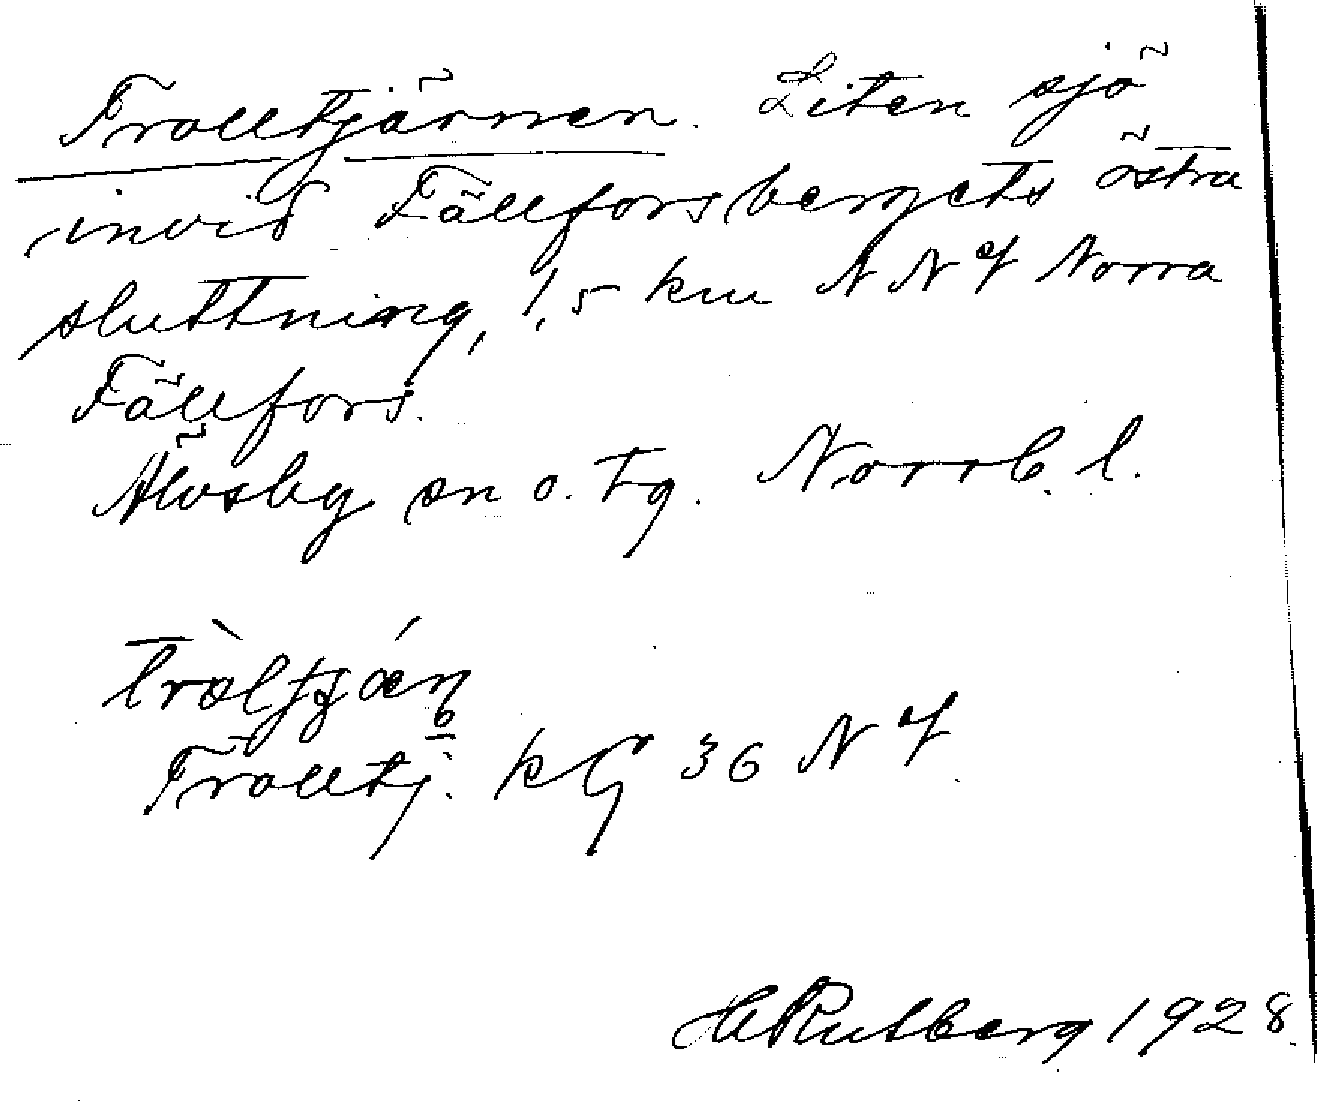 Trolltjärnen. Liten sjö
invid Fällforsbergets östra
sluttning, 1,5 km NNV Norra
Fällfors.
Älvsby sn o. tg. Norrb. l.
Trolltj. kG 36 NV
H Rutberg 1928.